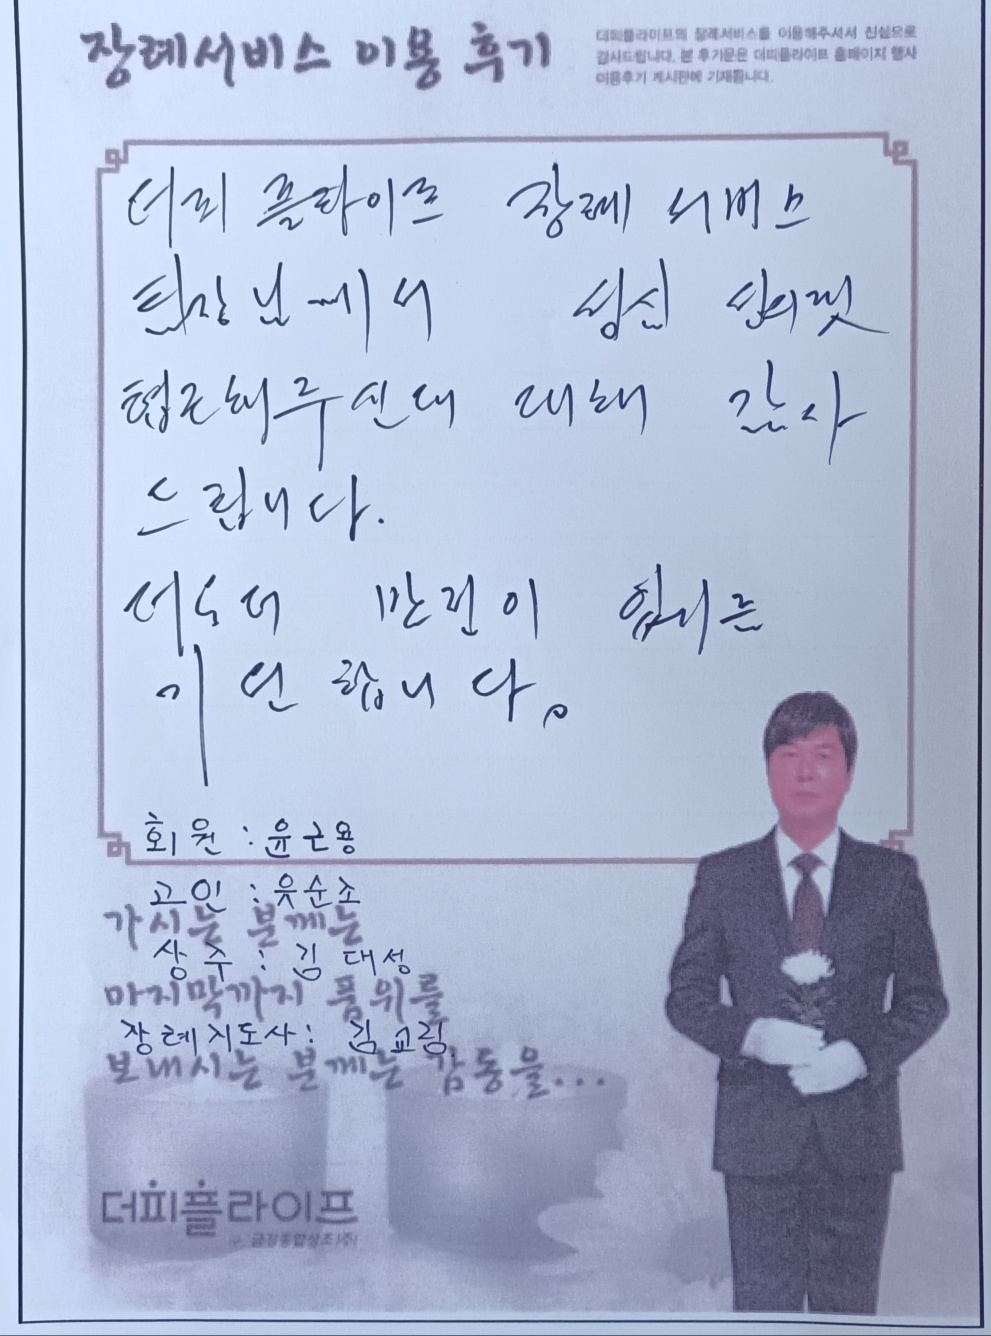 장례서비스 이용 후기
더피플라이프의 장례서비스를 이용해주셔서 진심으로
감사드립니다. 본 후기문은 더피플라이프 홈페이지 행사
이용후기 게시판에 기재됩니다.
더피플라이프 장례 서비스
팀장님에서 성심 성의껏
협조해주신데 대해 감사
드립니다.
더욱더 만전이
기원합니다.
회원 : 윤근용
고인 : 유순조
가시는 분께는
상주 : 김대성
마지막까지 품위를
장례지도사 : 김교림
보내시는 분께는 감동을...
더피플라이프
금강종합상조(주)